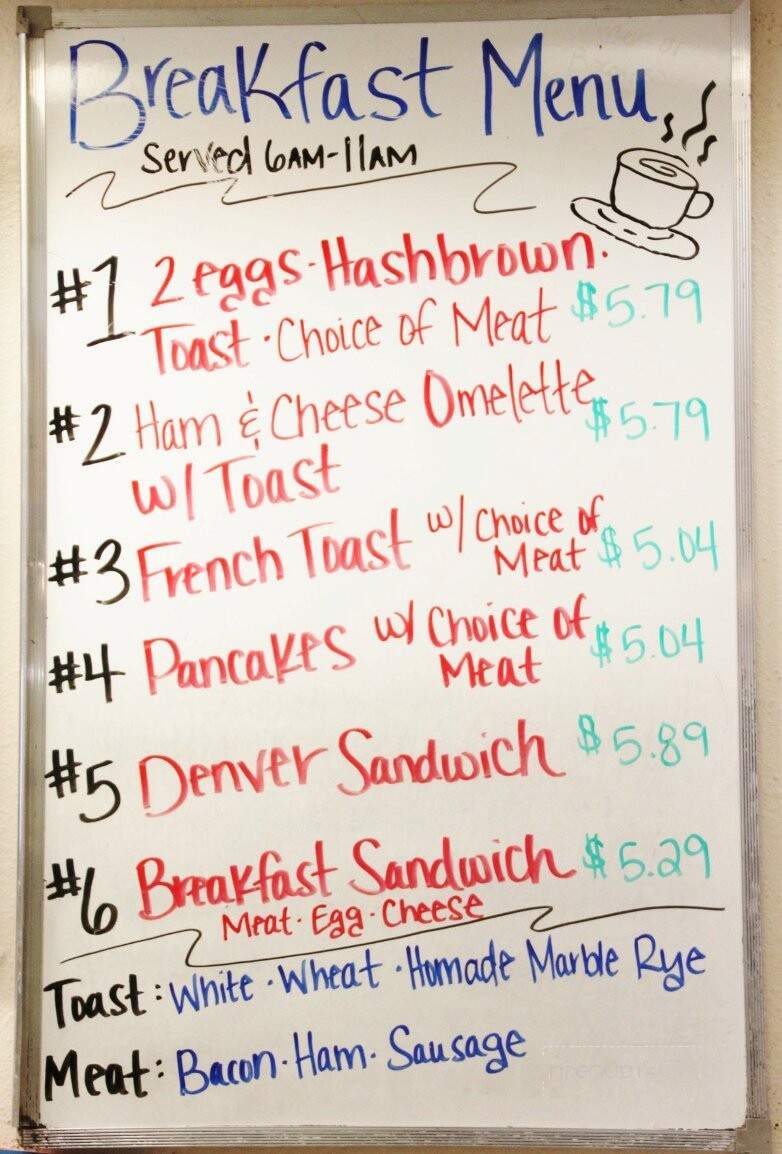 Breakfast Menu
Served 6AM-11AM
#1 2 eggs · Hashbrown ·
Toast · Choice of Meat $5.79
#2 Ham & Cheese Omelette $5.79
w/ Toast
#3 French Toast w/ Choice of
Meat $5.04
#4 Pancakes w/ Choice of
Meat $5.04
#5 Denver Sandwich $5.89
#6 Breakfast Sandwich $5.29
Meat · Egg · Cheese
Toast: White · Wheat · Homade Marble Rye
Meat: Bacon · Ham · Sausage